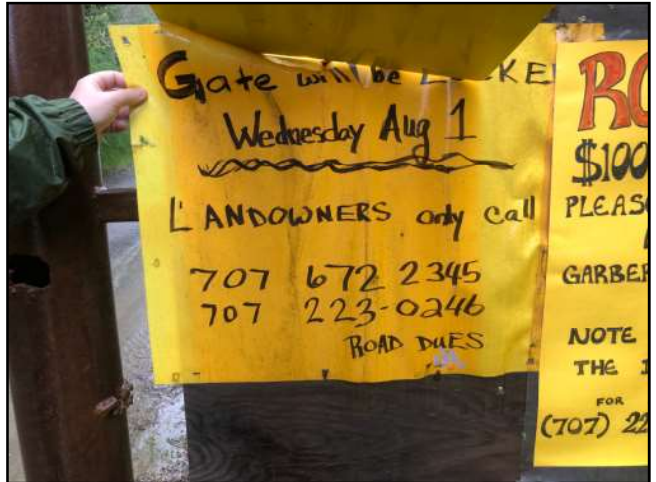 Gate will be LOCKE
Wednesday Aug 1
LANDOWNERS only call
707 672 2345
707 223-0246
ROAD DUES
RO
$100
PLEAS
GARBER
NOTE
THE
FOR
(707) 22